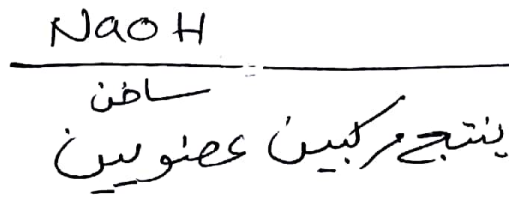 NaOH
ساخن
ينتج مركبين عضويين